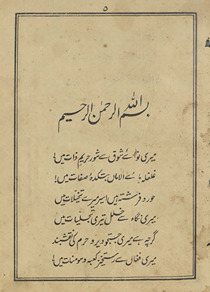 ۵
بسم اللہ الرحمٰن الرحیم
میری نوائے شوق سے شور حریم ذات میں!
غلغلہ ہائے الاماں بتکدۂ صفات میں!
حور و فرشتہ ہیں اسیر میرے تخیلات میں
میری نگاہ سے خلل تیری تجلیات میں
گرچہ ہے میری جستجو دیر و حرم کی نقشبند
میری فغاں سے رستخیز کعبہ و سومنات میں!